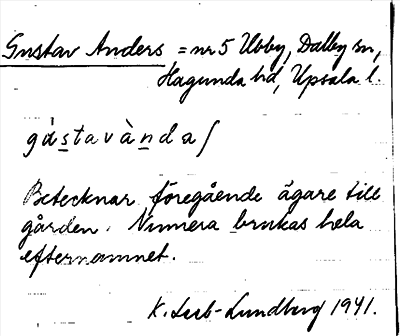 Gustav Anders = nr 5 Ubby, Dalby sn,
Hagunda hd, Upsala l.
gústavànda/
Betecknar föregående ägare till
gården. Numera brukas hela
efternamnet.
K. Leeb-Lundberg 1941.